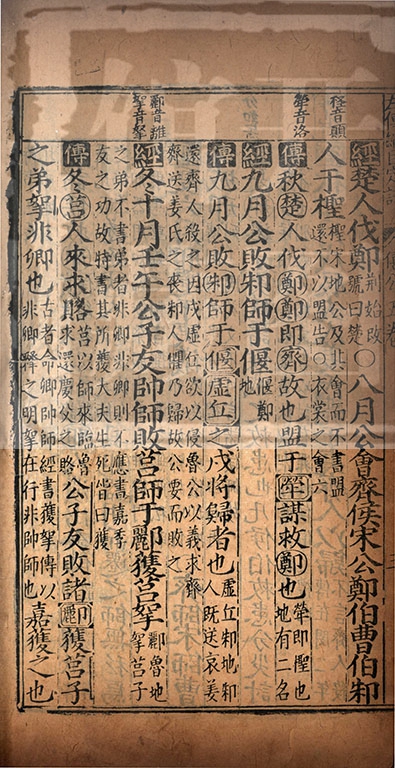 檉音
經楚人伐鄭荊始改號曰楚○八月公會齊侯宋公鄭伯曹伯邾
人于檉檉宋地公及其會而不書盟還不以盟告○衣裳之會六
犖音洛
傳秋楚人伐鄭鄭即齊故也盟于犖謀救鄭也犖即檉也地有二名
經九月公敗邾師于偃偃鄭地
傳九月公敗邾師于偃虛丘之戍將歸者也虛丘邾地邾人既送哀姜
還齊人殺之因戍虛丘欲以侵魯公以義求齊齊送姜氏之喪邾人懼乃歸故公要而敗之
酈音離
挐音拏
經冬十月壬午公子友帥師敗莒師于酈獲莒挐酈魯地挐莒子
之弟不書弟者非卿非卿則不應書嘉季友之功故特書其所獲大夫生死皆曰獲
傳冬莒人來求賂莒以師來臨魯求還慶父之賂公子友敗諸酈獲莒子
之弟挐非卿也古者命卿帥師經書獲挐傳以非卿釋之明挐在行非帥師也嘉獲之也